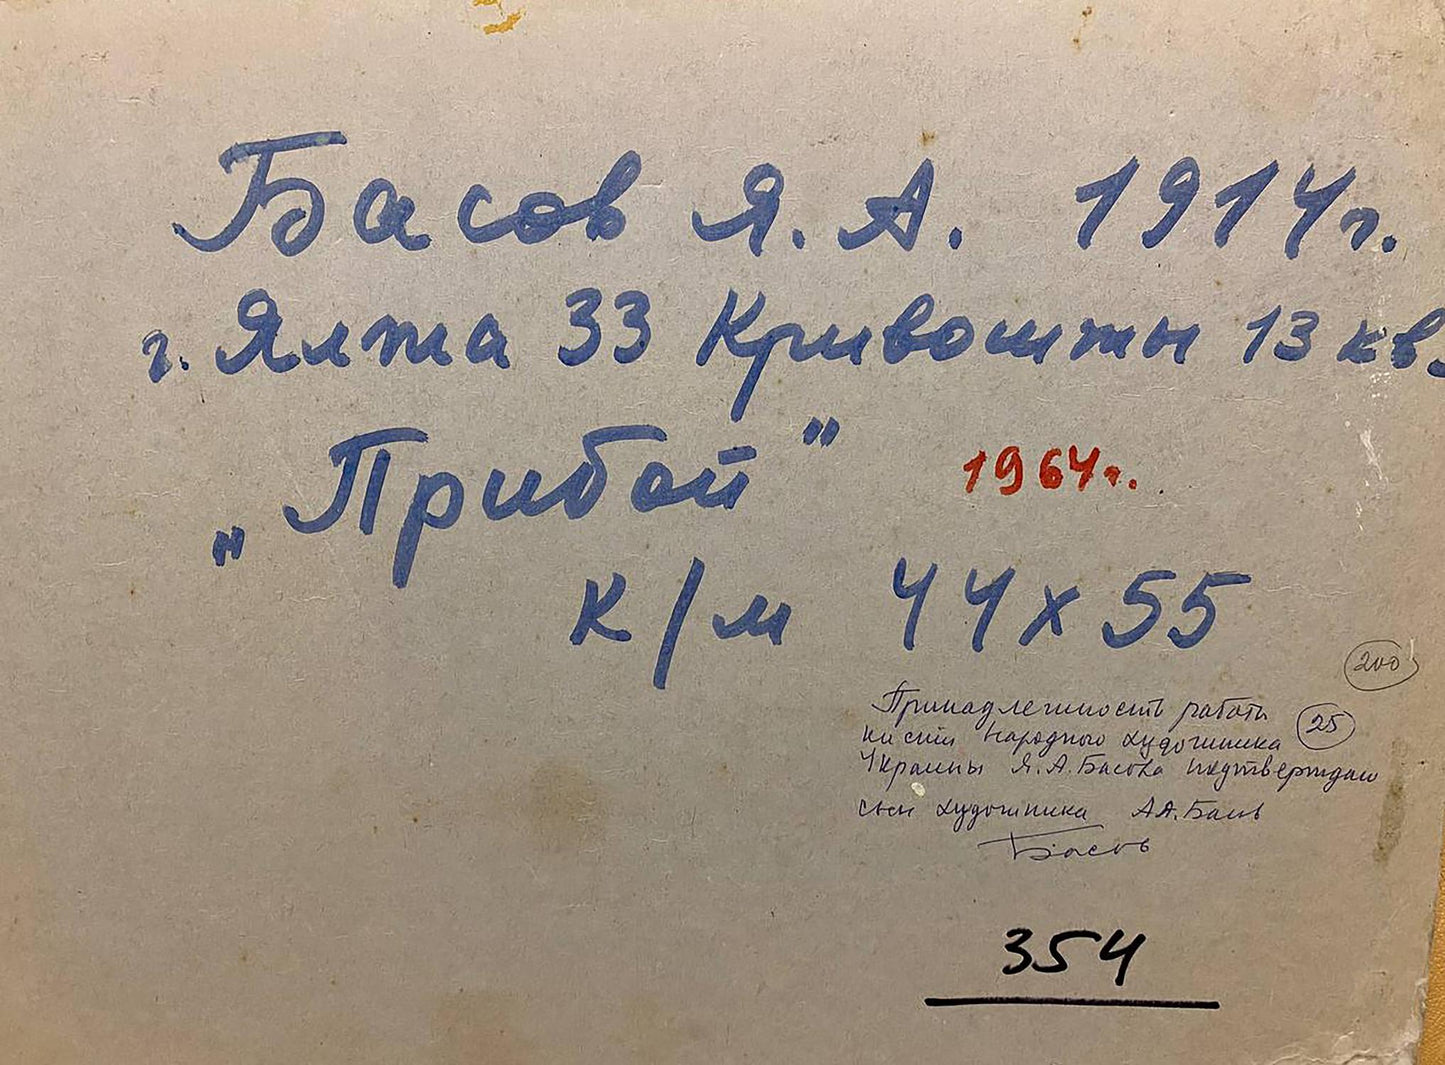 Басов Я. А. 1914 г.
г. Ялта 33 Кривошты 13 кв.
„Прибой" 1964 г.
К/м 44 х 55
200
Принадлежность работы
кисти Народного художника 25
Украины Я. А. Басова подтверждаю
сын художника А А. Басов
Басов
354